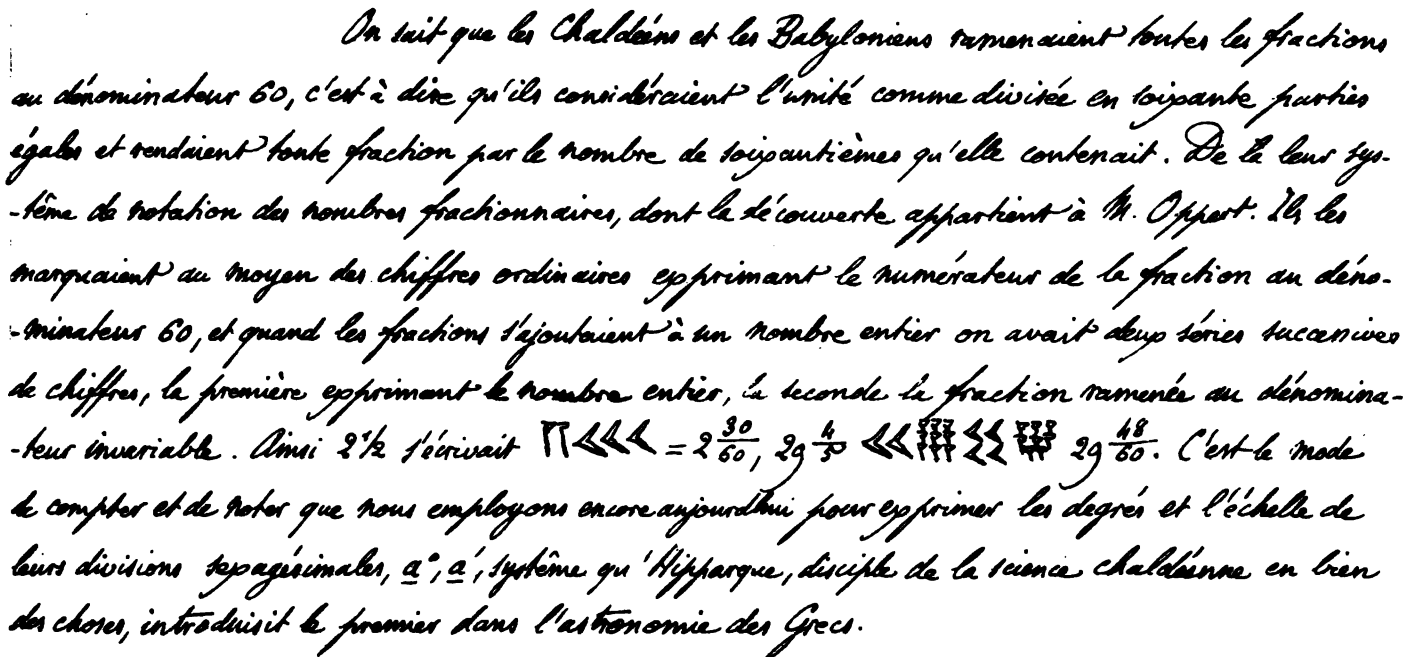 On sait que les Chaldéens et les Babyloniens ramenaient toutes les fractions
au dénominateur 60, c'est à dire qu'ils considéraient l'unité comme divisée en soixante parties
égales et rendaient toute fraction par le nombre de soixantièmes qu'elle contenait. De là leur sys-
-tême de notation des nombres fractionnaires, dont la découverte appartient à M. Oppert. Ils les
marquaient au moyen des chiffres ordinaires exprimant le numérateur de la fraction au déno-
-minateur 60, et quand les fractions s'ajoutaient à un nombre entier on avait deux séries successives
de chiffres, la première exprimant le nombre entier, la seconde la fraction ramenée au dénomina-
-teur invariable. Ainsi 2 1/2 s'écrivait 𒈫𒌍 = 2 30/60, 29 4/5 𒎙𒑆𒐏𒑄 29 48/60. C'est le mode
de compter et de noter que nous employons encore aujourd'hui pour exprimer les degrés et l'échelle de
leurs divisions sexagésimales, a°, a', système qu'Hipparque, disciple de la science chaldéenne en bien
des choses, introduisit le premier dans l'astronomie des Grecs.